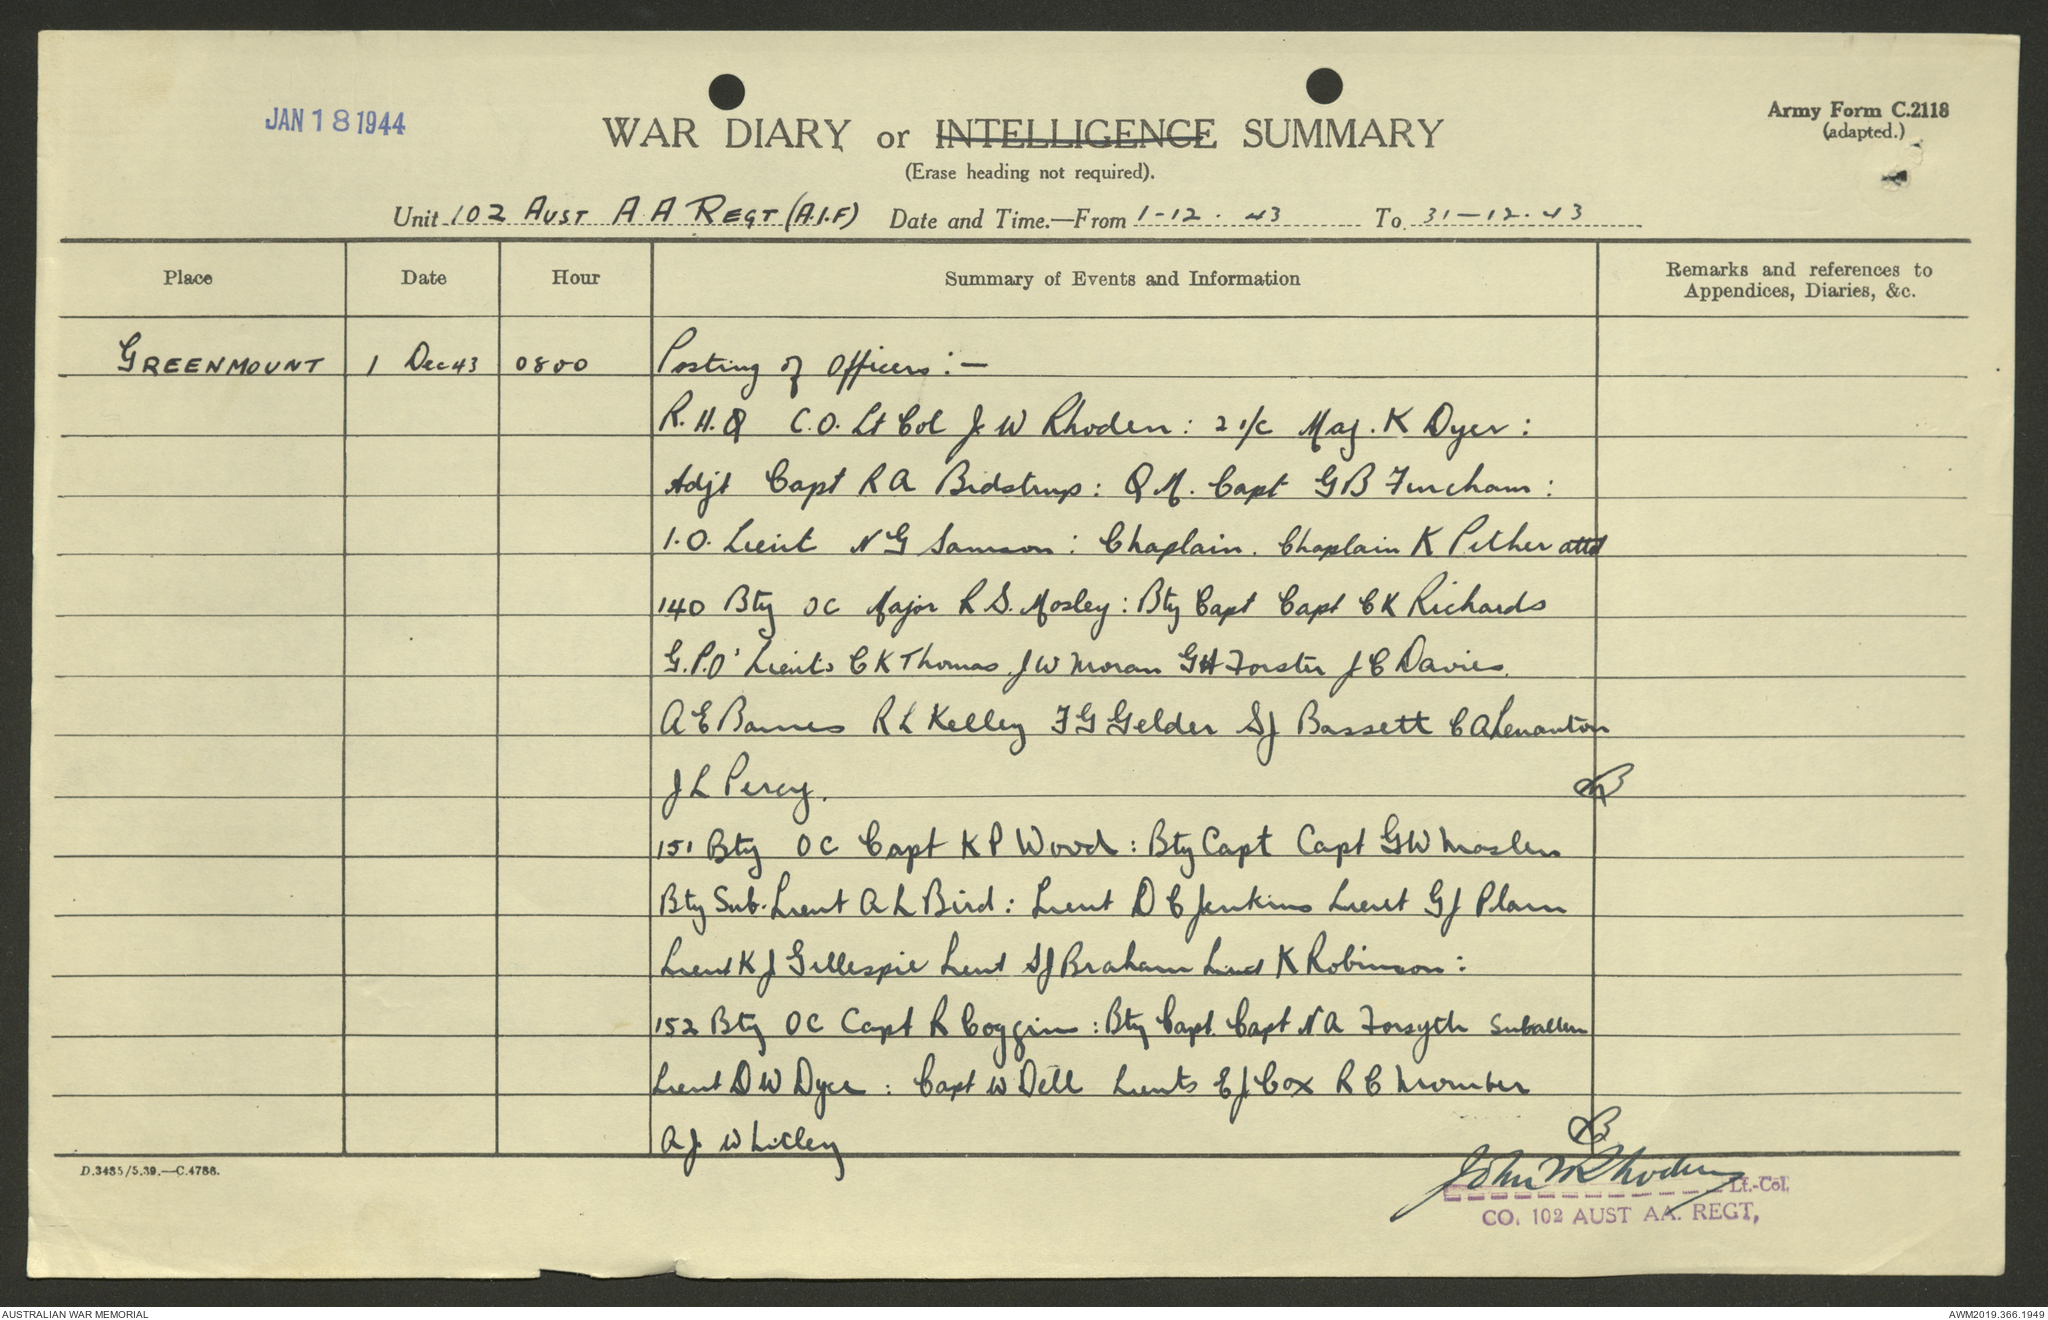 JAN 18 1944
Army Form C.2118
(adapted.)
WAR DIARY or INTELLIGENCE SUMMARY
(Erase heading not required).
Unit 102 AUST A A REGT (A.I.F) Date and Time.—From 1-12.43 To 31-12.43
Place Date Hour Summary of Events and Information Remarks and references to
Appendices, Diaries, &c.
GREENMOUNT 1 Dec 43 0800 Posting of Officers:—
R.H.Q C.O. Lt Col J W Rhoden: 2 i/c Maj. K Dyer:
Adjt Capt R A Bidstrup: Q M. Capt G B Fincham:
I.O. Lieut N G Samson: Chaplain. Chaplain K Pither attd
140 Bty OC Major R S. Mosley: Bty Capt Capt C K Richards
G.P.O' Lieuts C K Thomas J W Moran G H Forster J C Davies.
A E Barnes R L Kelley F G Gelder S J Bassett C A Lenanton
J L Percy.
151 Bty OC Capt K P Wood: Bty Capt Capt G W Maslen
Bty Sub. Lieut A L Bird: Lieut D C Jenkins Lieut G J Plam
Lieut K J Gillespie Lieut S J Braham Lieut K Robinson:
152 Bty OC Capt R Coggins: Bty Capt. Capt N A Forsyth
Lieut D W Dyce: Capt W Dell Lieuts E J Cox R C Momber
A J. Whitley
D.3485/5.39.—C.4786.
John W Rhoden
Lt.-Col.
CO. 102 AUST AA. REGT,
AUSTRALIAN WAR MEMORIAL
AWM2019.366.1949